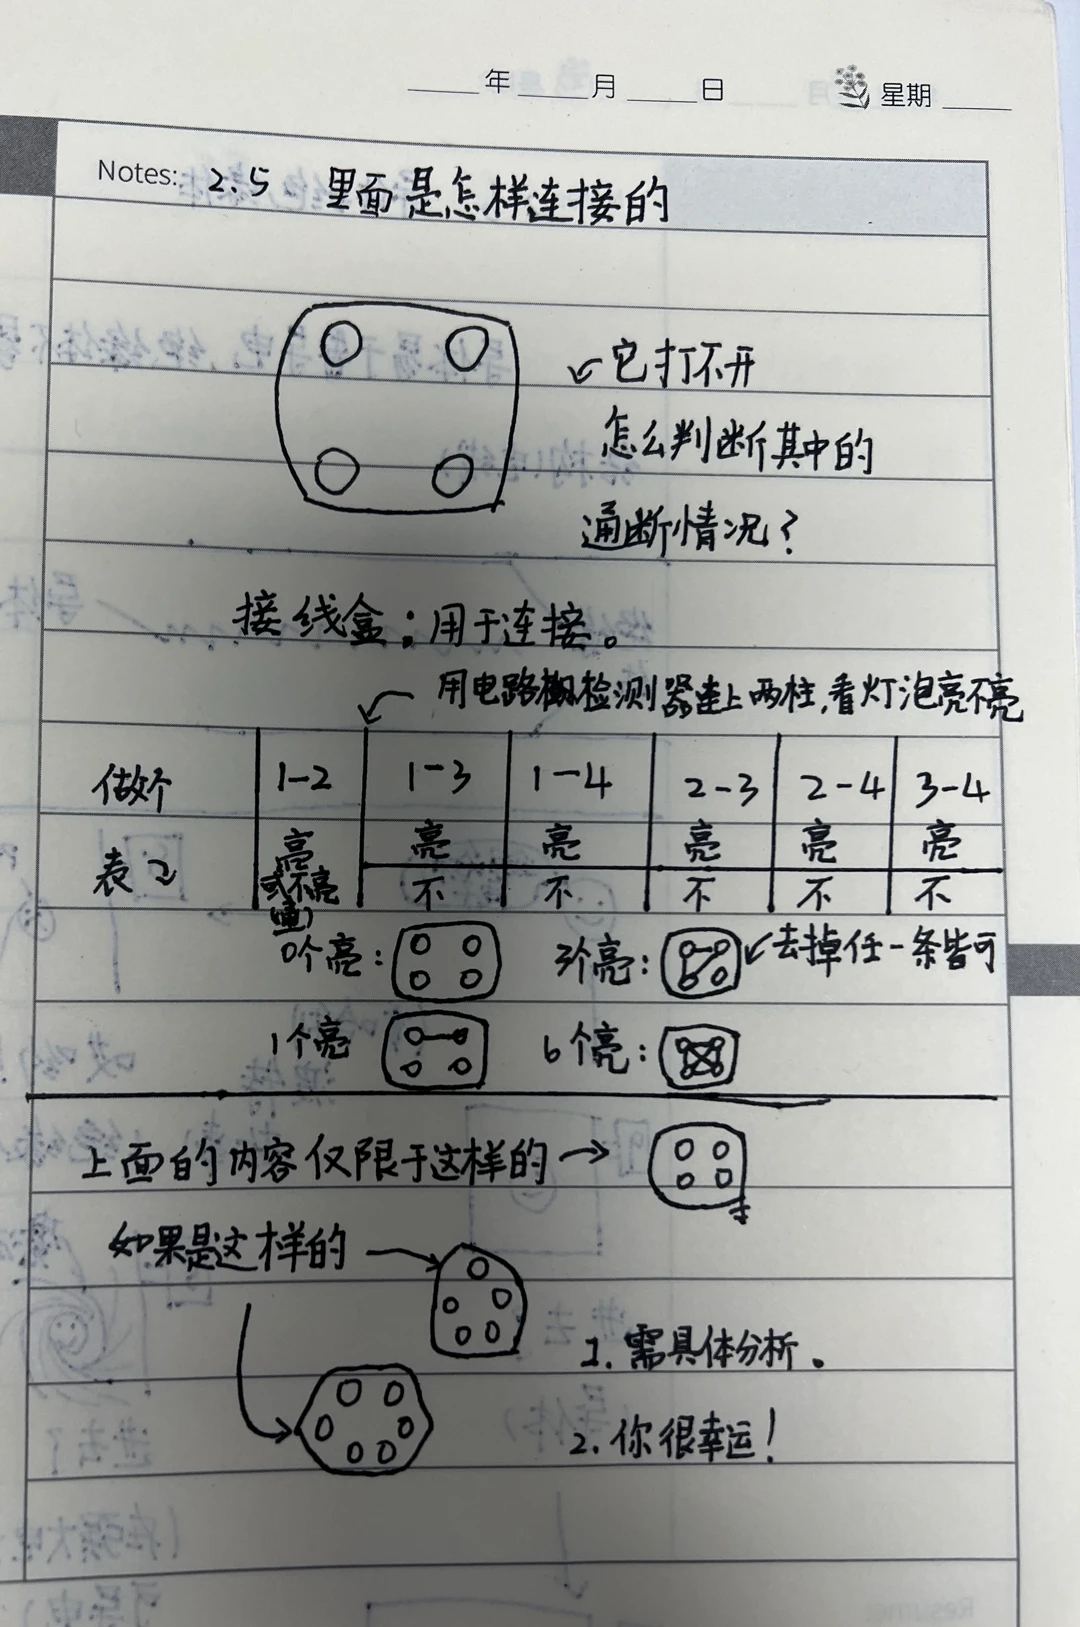 年 月 日 星期
Notes: 2.5 里面是怎样连接的
它打不开
怎么判断其中的
通断情况？
接线盒：用于连接。
用电路检测器连上两柱，看灯泡亮不亮
做好个 1-2 1-3 1-4 2-3 2-4 3-4
表2 亮 亮 亮 亮 亮 亮
或不亮 不 不 不 不 不
0个亮： 3个亮： 去掉任一条皆可
1个亮 6个亮：
上面的内容仅限于这样的
如果是这样的
1. 需具体分析。
2. 你很幸运！